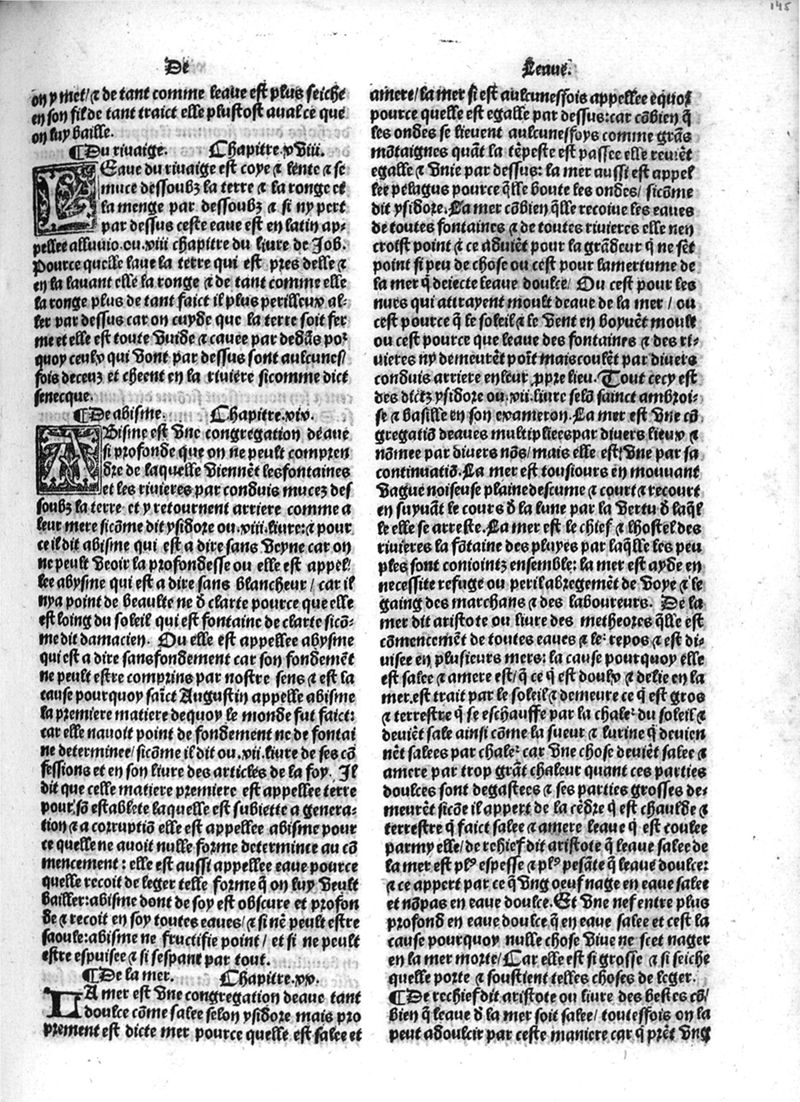 145
De
Leaue.
on y met/ ⁊ de tant comme leaue est plus seiche
en son fil de tant traict elle plustost aual ce que
on luy baille.
¶Du riuaige. Chapitre.xviii.
LEaue du riuaige est coye ⁊ lente ⁊ se
muce dessoubz la terre ⁊ la ronge et
la menge par dessoubz ⁊ si ny pert
par dessus ceste eaue est en latin ap-
pellee alluuio.ou.viii chapitre du liure de Job.
Pource quelle laue la terre qui est pres delle ⁊
en la lauant elle la ronge ⁊ de tant comme elle
la ronge plus de tant faict il plus perilleux al-
ler par dessus car on cuyde que la terre soit fer
me et elle est toute vuide ⁊ cauee par dedãs por
quoy ceulx qui vont par dessus sont aulcunes/
fois deceuz et cheent en la riuiere sicomme dict
senecque.
¶De abisme. Chapitre.xix.
ABisme est vne congregation deaue
si profonde que on ne peult compren
dre de laquelle viennẽt lesfontaines
et les riuieres par conduis mucez des
soubz la terre et y retournent arriere comme a
leur mere sicõme dit ysidore ou.viii.liure:⁊ pour
ce il dit abisme qui est a dire sans veyne car on
ne peult veoir la profondesse ou elle est appel/
lee abysme qui est a dire sans blancheur/ car il
nya point de beaulte ne d̛ clarte pource que elle
est loing du soleil qui est fontaine de clarte sicõ-
me dit damacien. Ou elle est appellee abysme
qui est a dire sansfondement car son fondemẽt
ne peult estre comprins par nostre sens ⁊ est la
cause pourquoy saĩct Augustin appelle abisme
la premiere matiere dequoy le monde fut faict:
car elle nauoit point de fondement ne de fontai
ne determinee/ sicõme il dit ou.vii.liure de ses cõ
fessions et en son liure des articles de la foy. Il
dit que celle matiere premiere est appellee terre
pour sõ establete laquelle est subiette a genera-
tion ⁊ a corruptiõ elle est appellee abisme pour
ce quelle ne auoit nulle forme determinee au cõ
mencement : elle est aussi appellee eaue pource
quelle recoit de leger telle forme q̃ on luy veult
bailler:abisme dont de soy est obscure et profon
de ⁊ recoit en soy toutes eaues/ ⁊ si nẽ peult estre
saoule:abisme ne fructifie point/ et si ne peult
estre espuisee ⁊ si sespant par tout.
¶De la mer. Chapitre.xx.
LA mer est vne congregation deaue tant
doulce cõme salee selon ysidore mais pro
prement est dicte mer pource quelle est salee et
amere/ la mer si est aulcunessois appellee equor
pource quelle est egalle par dessus:car cõbien q̃
les ondes se lieuent aulcunessoys comme grãs
mõtaignes quãt la tẽpeste est passee elle reuiẽt
egalle ⁊ vnie par dessus: la mer aussi est appel
lee pelagus pource q̃lle boute les ondes/ sicõme
dit ysidore.La mer cõbien q̃lle recoiue les eaues
de toutes fontaines ⁊ de toutes riuieres elle nen
croist point ⁊ ce aduiẽt pour la grãdeur q̃ ne sẽt
point si peu de chose ou cest pour lamertume de
la mer q̃ deiecte leaue doulce/ Ou cest pour les
nues qui attrayent moult deaue de la mer/ ou
cest pource q̃ le soleil ⁊ le vent en boyuẽt moult
ou cest pource que leaue des fontaines ⁊ des ri-
uieres ny demeurẽt poĩt mais coulẽt par diuers
conduis arriere en leur ꝓpre lieu. Tout cecy est
des dictz ysidore ou.vii.liure selõ sainct ambroi-
se ⁊ basille en son exameron.La mer est vne cõ
gregatiõ deaues multipliees par diuers lieux ⁊
nõmee par diuers nõs/ mais elle est vne par sa
continuatiõ.La mer est tousiours en mouuant
vague noiseuse plaine descume ⁊ court ⁊ recourt
en suyuãt le cours d̛ la lune par la vertu d̛ laq̃l
le elle se arreste.La mer est le chief ⁊ lhostel des
riuieres la fõtaine des pluyes par laq̃lle les peu
ples sont conioictz ensemble: la mer est ayde en
necessite refuge ou peril abregemẽt de voye ⁊ le
gaing des marchans ⁊ des laboureurs. De la
mer dit aristote ou liure des metheores q̃lle est
cõmencemẽt de toutes eaues ⁊ ler repos ⁊ est di-
uisee en plusieurs mers: la cause pourquoy elle
est salee ⁊ amere est/ q̃ ce q̃ est doulx ⁊ delie en la
mer.est trait par le soleil ⁊ demeure ce q̃ est gros
⁊ terrestre q̃ se eschauffe par la chaler du soleil ⁊
deuiẽt sale ainsi cõme la sueur ⁊ lurine q̃ deuien
nẽt salees par chaler car vne chose deuiẽt salee ⁊
amere par trop grãt chaleur quant ces parties
doulces sont degastees ⁊ ses parties grosses de-
meurẽt sicõe il appert de la cẽdre q̃ est chaulde ⁊
terrestre q̃ faict salee ⁊ amere leaue q̃ est coulee
parmy elle/ de rechief dit aristote q̃ leaue salee de
la mer est plꝰ espesse ⁊ plꝰ pesãte q̃ leaue doulce:
⁊ ce appert par ce q̃ vng oeuf nage en eaue salee
et nõpas en eaue doulce.Et vne nef entre plus
profond en eaue doulce q̃ en eaue salee et cest la
cause pourquoy nulle chose viue ne scet nager
en la mer morte/ Car elle est si grosse ⁊ si seiche
quelle porte ⁊ soustient telles choses de leger.
¶De rechief dit aristote ou liure des bestes cõ/
bien q̃ leaue d̛ la mer soit salee/ toutessois on la
peut adoulcir par ceste maniere car q̃ prẽt vng